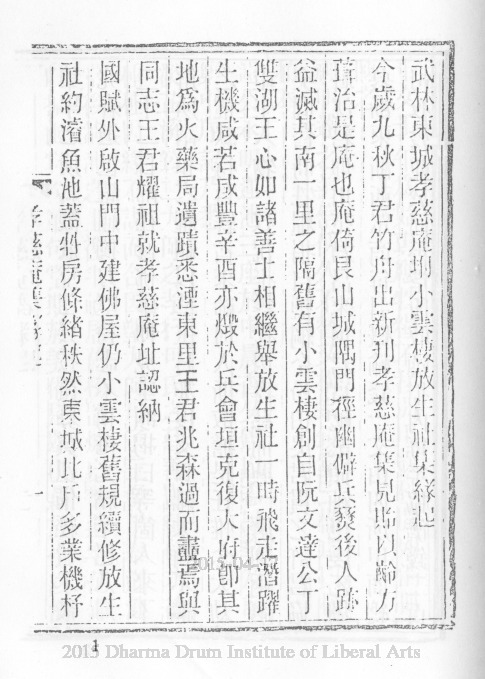 武林東城孝慈庵坿小雲棲放生社集緣起
今歲九秋丁君竹舟出新刋孝慈庵集見貽以齡方
葺治是庵也庵倚艮山城隅門徑幽僻兵燹後人跡
益滅其南一里之隔舊有小雲棲創自阮文達公丁
雙湖王心如諸善士相繼舉放生社一時飛走潛躍
生機咸若咸豐辛酉亦燬於兵會垣克復大府卽其
地爲火藥局遺蹟悉湮東里王君兆森過而盡焉與
同志王君耀祖就孝慈庵址認納
國賦外啟山門中建佛屋仍小雲棲舊規續修放生
社約濬魚池蓋牲房條緒秩然東城比戶多業機杼
孝慈庵集
一
1
2013 Dharma Drum Institute of Liberal Arts